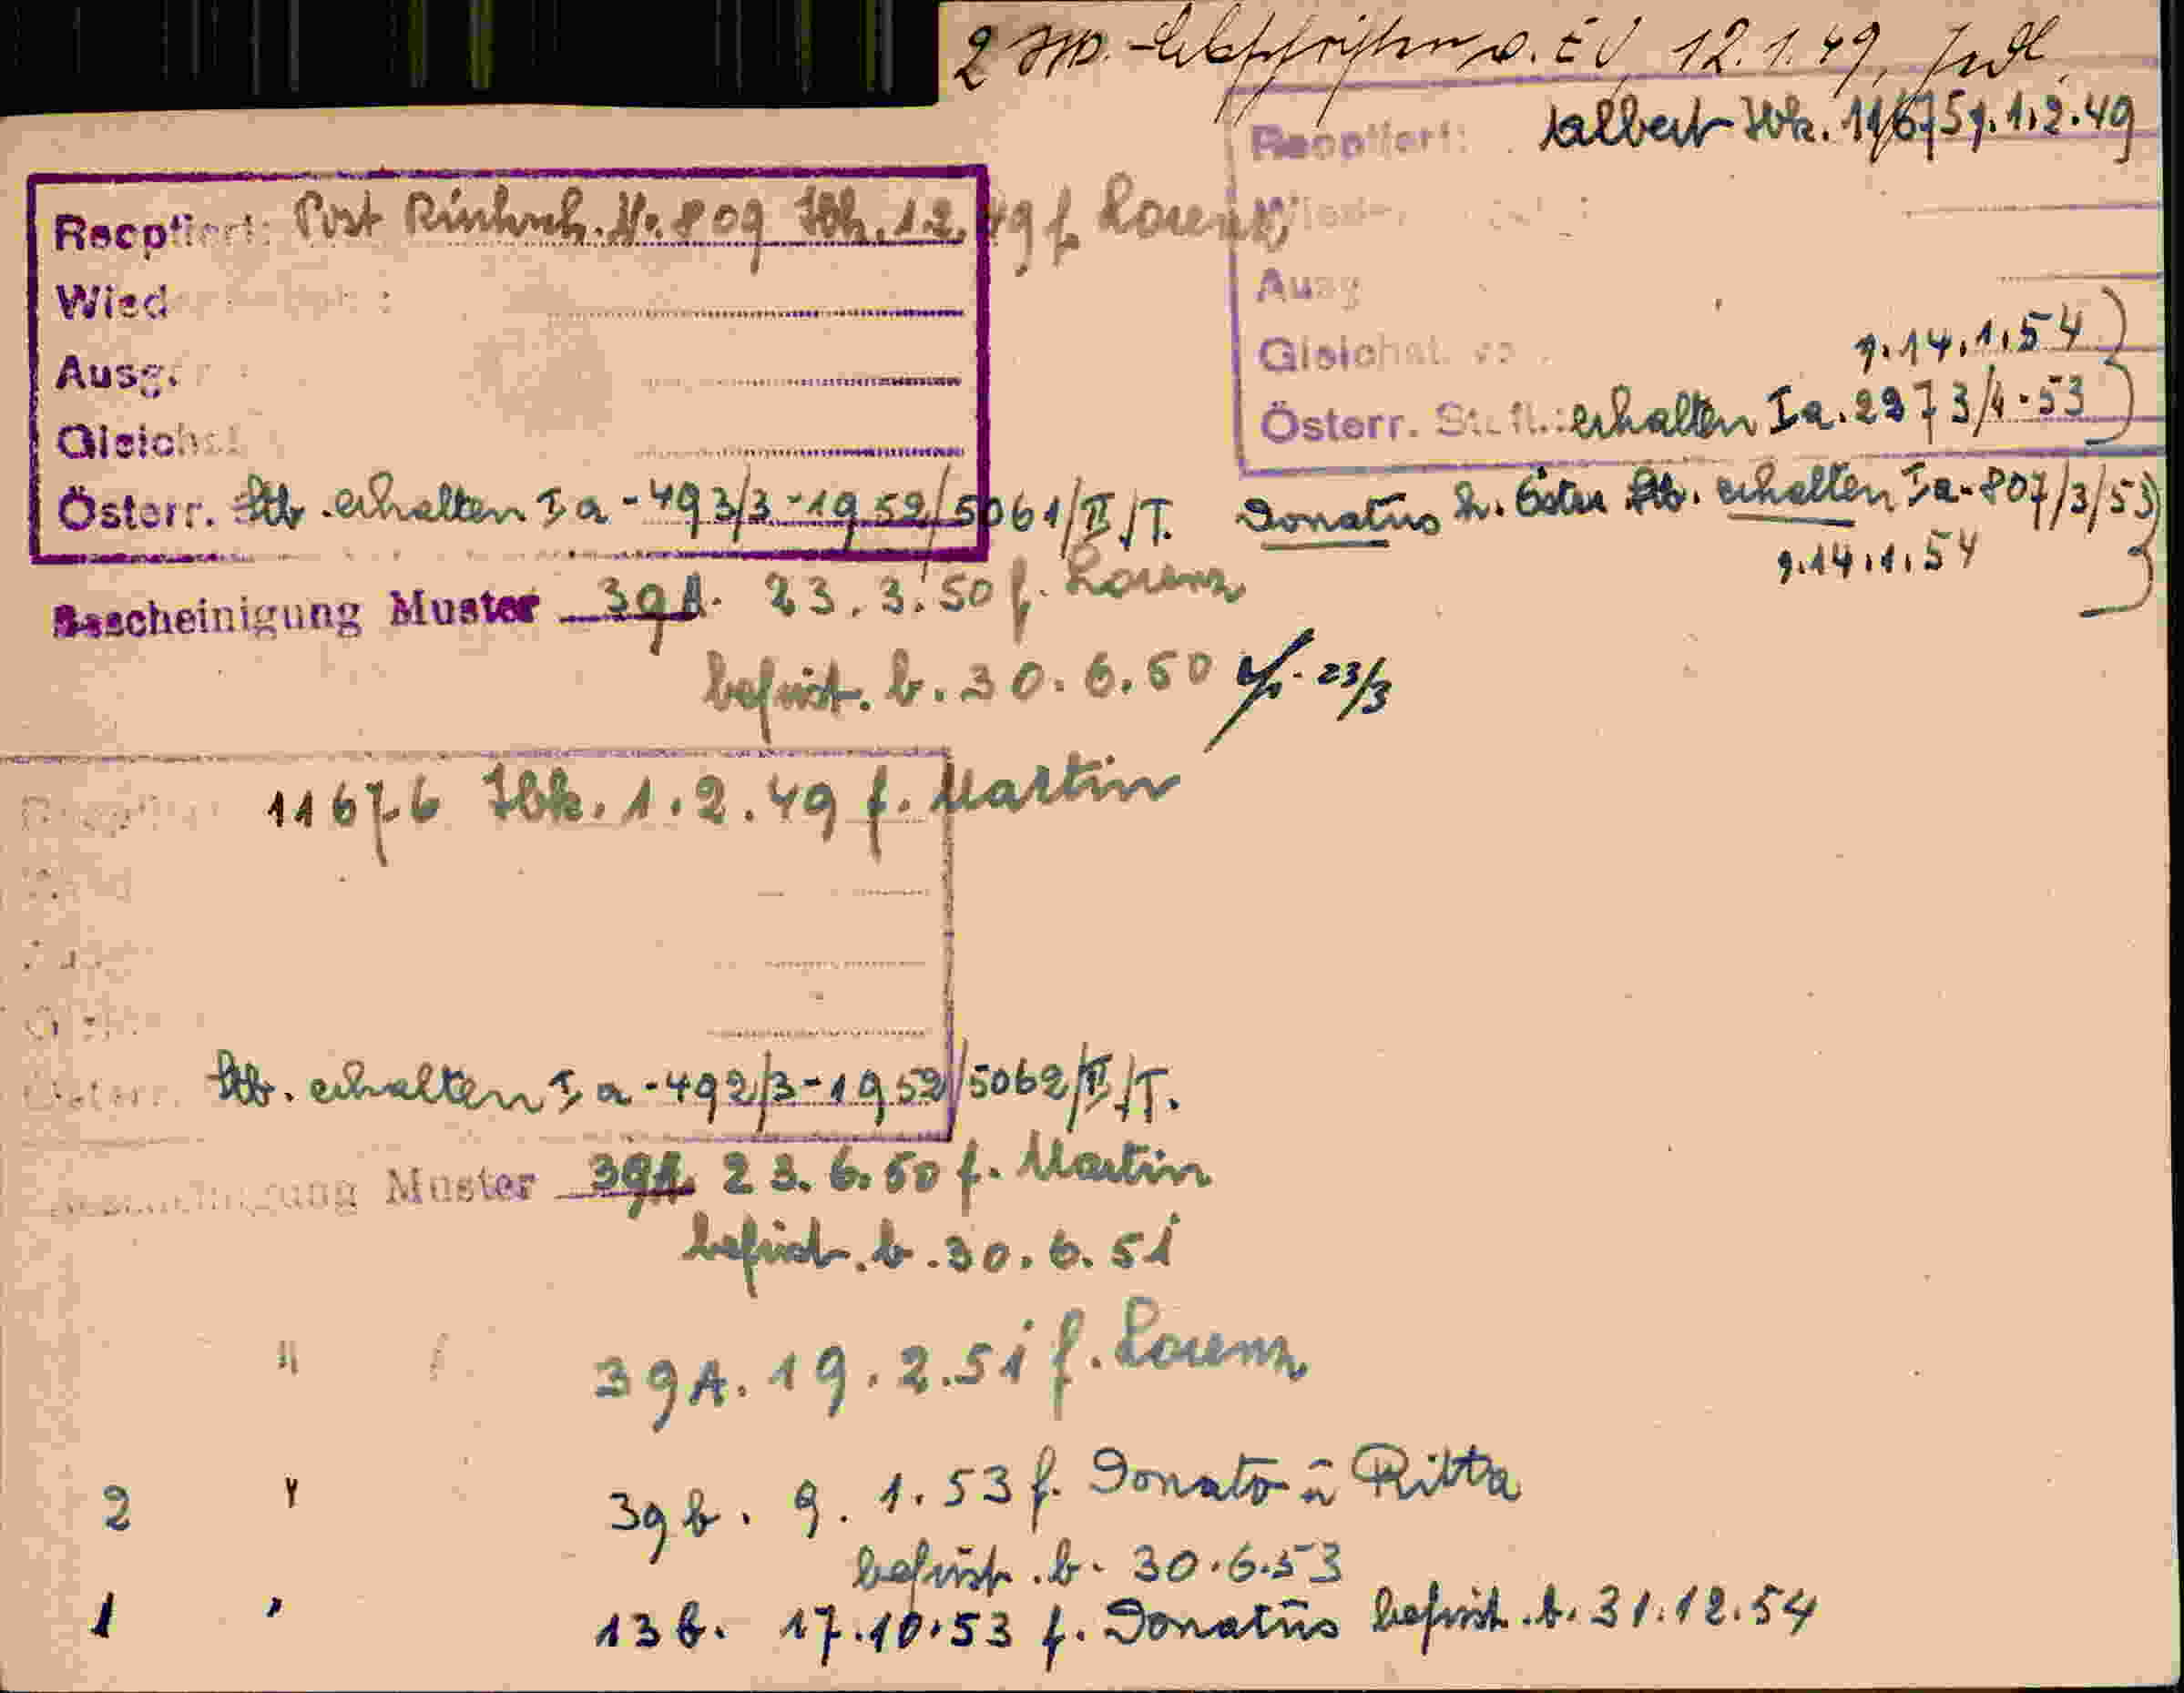 2 12.1.49,
Albert Ibk. 11675 g. 1.2.49
Reoptiert:
Reoptiert: Post Nr. 809 Ibk. 1.2.49 f. Lorenz
Wied
Ausg
Gleichst.
g. 14.1.54
Österr. erhalten Ia. 2273/4-53
Wied
Ausg.
Gleichst
Österr. Stb. erhalten Ia-493/3-1952/5061/II/T.
Donatus h. Stb. erhalten Ia-807/3/53
g. 14.1.54
Bescheinigung Muster 39A. 23.3.50 f. Lorenz
befrist. b. 30.6.50 23/3
11676 Ibk. 1.2.49 f. Martin
Österr. Stb. erhalten Ia-492/3-1952/5062/II/T.
Muster 39A. 23.6.50 f. Martin
befrist. b. 30.6.51
" 39A. 19.2.51 f. Lorenz
2 " 39b. 9.1.53 f. Donato ū Ritta
befrist. b. 30.6.53
1 " 13b. 17.10.53 f. Donatus befrist. b. 31.12.54